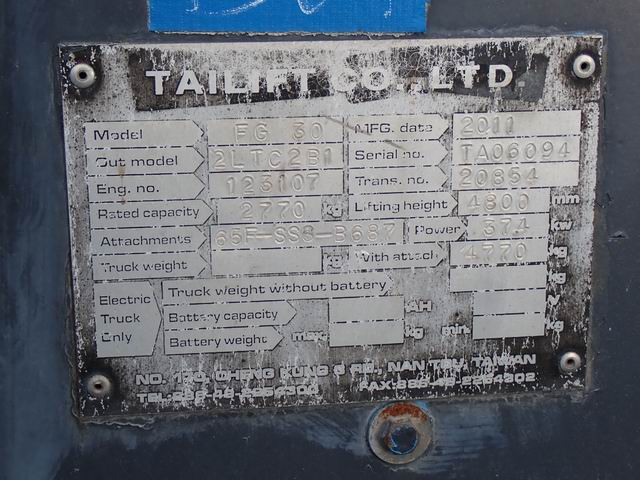 TAILIFT CO., LTD.
Model FG 30 MFG. date 2011
Out model 2LTC2B1 Serial no. TA06094
Eng. no. 123107 Trans. no. 20854
Rated capacity 2770 kg Lifting height 4800 mm
Attachments 65F-SS8-B687 Power 37.4 kw
Truck weight kg With attach. 4770 kg
Electric Truck Only
Truck weight without battery kg
Battery capacity AH V
Battery weight max. kg min. kg
CHENG KUNG RD., NAN TOU, TAIWAN